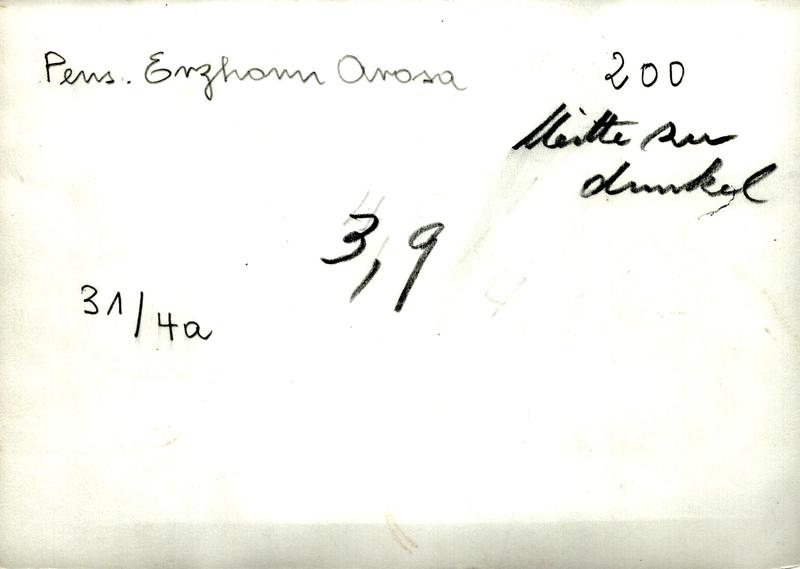 Pens. Erzhorn Arosa
200
Mitte zu
dunkel
3,9
31/4a